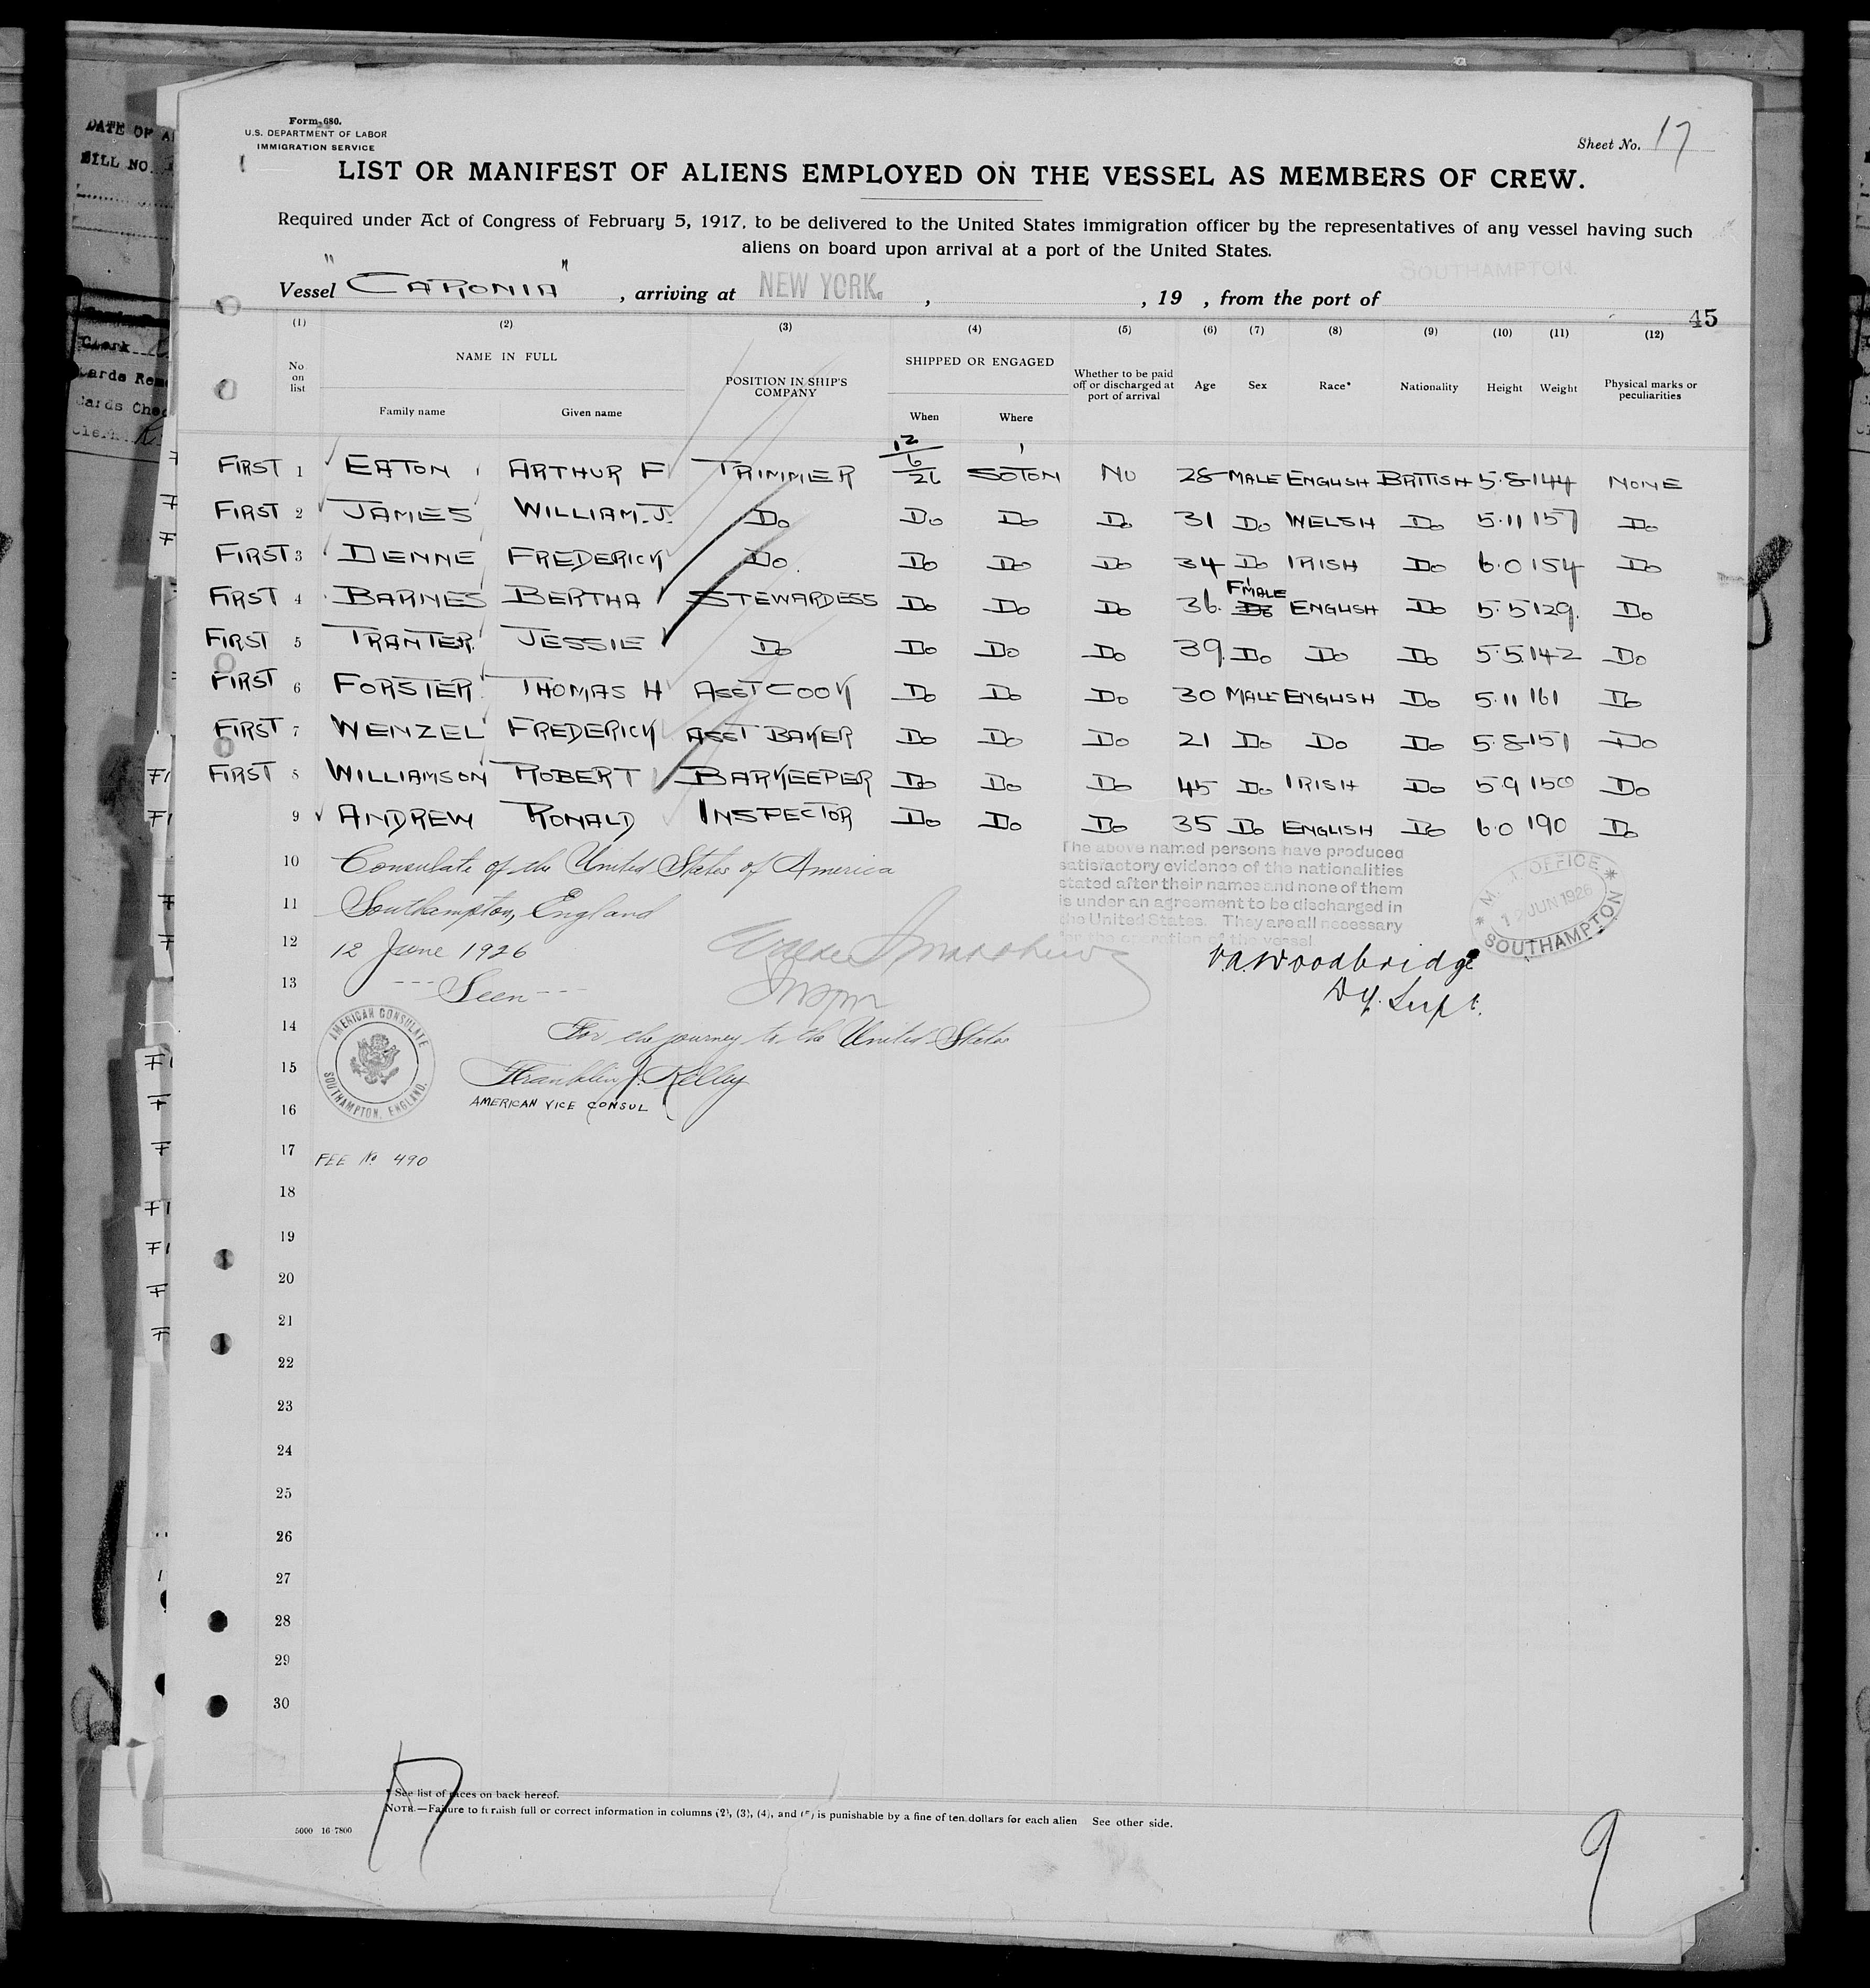 Form 680.
U.S. DEPARTMENT OF LABOR
IMMIGRATION SERVICE
Sheet No. 17
LIST OR MANIFEST OF ALIENS EMPLOYED ON THE VESSEL AS MEMBERS OF CREW.
Required under Act of Congress of February 5, 1917, to be delivered to the United States immigration officer by the representatives of any vessel having such
aliens on board upon arrival at a port of the United States.
SOUTHAMPTON
Vessel "CARONIA", arriving at NEW YORK. , , 19 , from the port of
45
(1) (2) (3) (4) (5) (6) (7) (8) (9) (10) (11) (12)
No on list NAME IN FULL Family name Given name POSITION IN SHIP'S COMPANY SHIPPED OR ENGAGED When Where Whether to be paid off or discharged at port of arrival Age Sex Race* Nationality Height Weight Physical marks or peculiarities
FIRST 1 EATON ARTHUR F TRIMMER 12/6/26 SOTON NO 28 MALE ENGLISH BRITISH 5.8 144 NONE
FIRST 2 JAMES WILLIAM.J. DO DO DO DO 31 DO WELSH DO 5.11 157 DO
FIRST 3 DENNE FREDERICK DO. DO DO DO 34 DO IRISH DO 6.0 154 DO
FIRST 4 BARNES BERTHA STEWARDESS DO DO DO 36. DO FMALE ENGLISH DO 5.5 129. DO
FIRST 5 TRANTER JESSIE DO DO DO DO 39. DO DO DO 5.5 142 DO
FIRST 6 FORSTER THOMAS H ASST COOK DO DO DO 30 MALE ENGLISH DO 5.11 161 DO
FIRST 7 WENZEL FREDERICK ASST BAKER DO DO DO 21 DO DO DO 5.8 151 DO
FIRST 8 WILLIAMSON ROBERT BARKEEPER DO DO DO 45 DO IRISH DO 5.9 150 DO
9 ANDREW RONALD INSPECTOR DO DO DO 35 DO ENGLISH DO 6.0 190 DO
The above named persons have produced
satisfactory evidence of the nationalities
stated after their names and none of them
is under an agreement to be discharged in
the United States. They are all necessary
for the operation of the vessel
OFFICE
12 JUN 1926
SOUTHAMPTON
10 Consulate of the United States of America
11 Southampton, England
12 12 June 1926
V.A. Woodbridge
Dy. Supt.
13 --- Seen ---
14 For the journey to the United States
AMERICAN CONSULATE
SOUTHAMPTON, ENGLAND.
15 Franklin J. Kelly
16 AMERICAN VICE CONSUL
17 FEE No. 490
18
19
20
21
22
23
24
25
26
27
28
29
30
17
* See list of races on back hereof.
NOTE.—Failure to furnish full or correct information in columns (2), (3), (4), and (5) is punishable by a fine of ten dollars for each alien See other side.
5000 16-7800
9